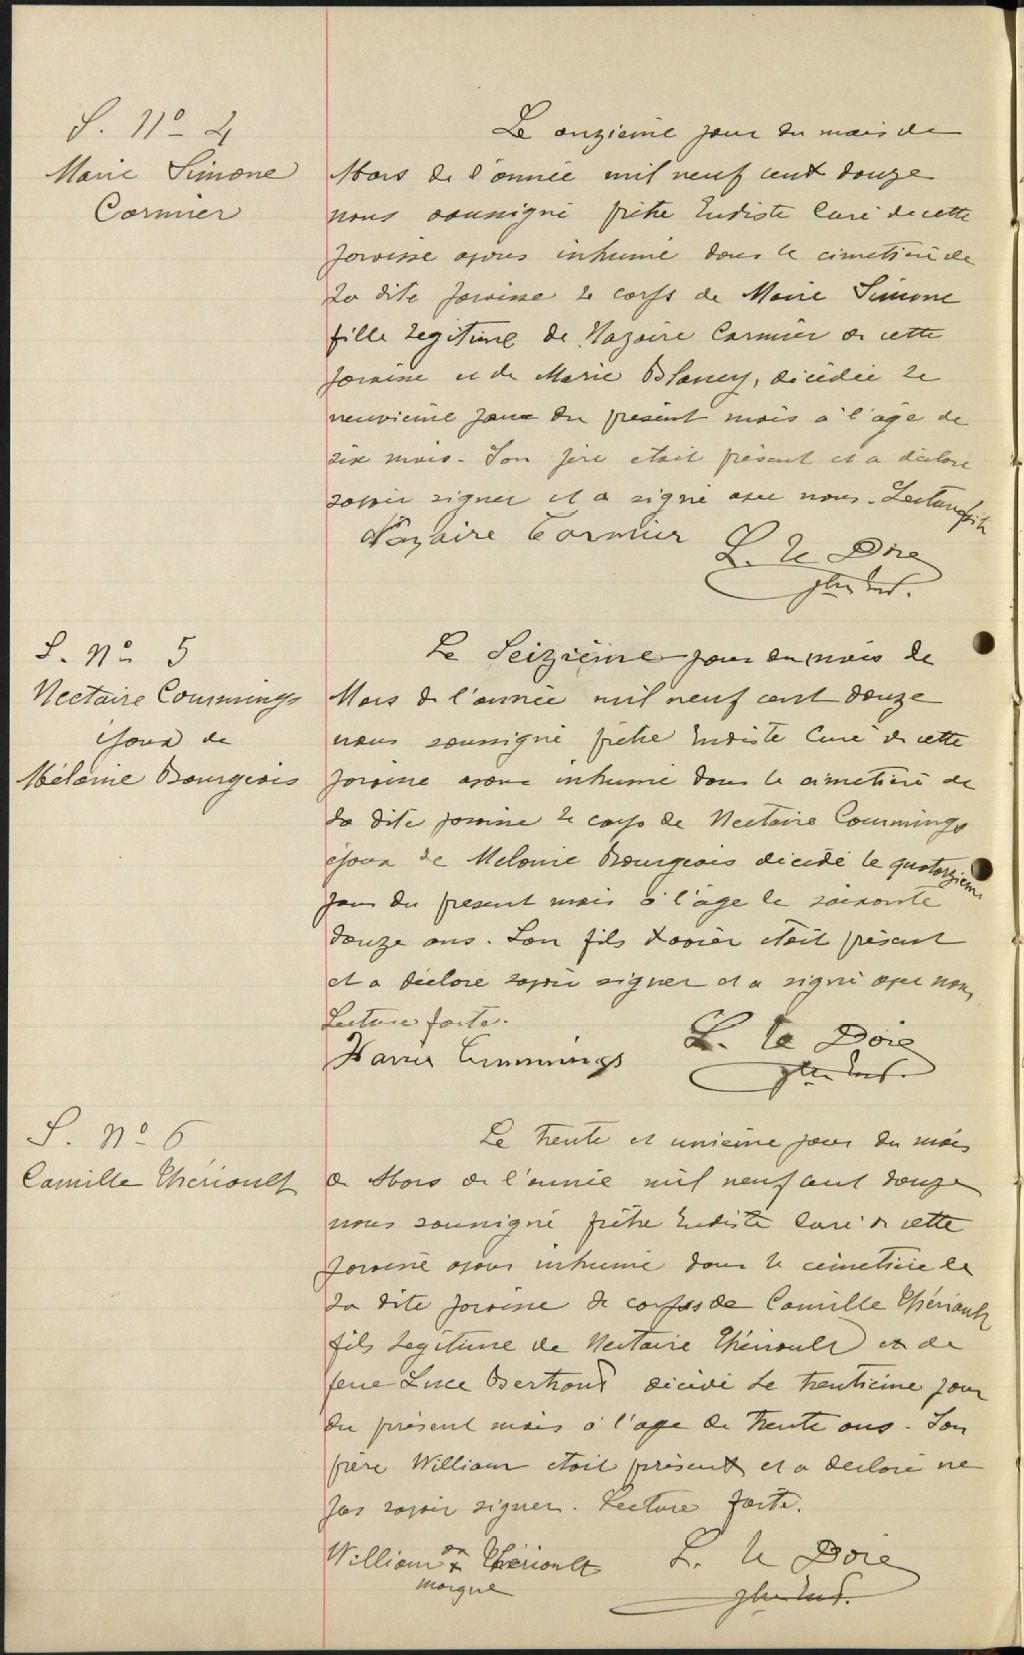 S. No 4
Marie Simone
Cormier
Le onzième jour du mois de
Mars de l'année mil neuf cent douze
nous soussigné prêtre Eudiste Curé de cette
paroisse avons inhumé dans le cimetière de
la dite paroisse le corps de Marie Simone
fille légitime de Nazaire Cormier de cette
paroisse et de Marie Blaney, décédée le
neuvième jour du présent mois à l'âge de
six mois. Son père était présent et a déclaré
savoir signer et a signé avec nous. Lecture faite
Nazaire Cormier
L. Le Doré
ptre Eud.
S. No 5
Nectaire Coummings
époux de
Mélanie Bourgeois
Le Seizième jour du mois de
Mars de l'année mil neuf cent douze
nous soussigné prêtre Eudiste Curé de cette
paroisse avons inhumé dans le cimetière de
la dite paroisse le corps de Nectaire Coummings
époux de Melanie Bourgeois décédé le quatorzième
jour du présent mois à l'âge de soixante
douze ans. Son fils Xavier était présent
et a déclaré savoir signer et a signé avec nous
Lecture faite.
Xavier Cummings
L. Le Doré
ptre Eud.
S. No 6
Camille Thériault
Le trente et unième jour du mois
de Mars de l'année mil neuf cent douze
nous soussigné prêtre Eudiste Curé de cette
paroisse avons inhumé dans le cimetière de
la dite paroisse le corps de Camille Thériault
fils légitime de Nectaire Thériault et de
feue Luce Bertrand décédé le trentième jour
du présent mois à l'age de trente ans. Son
frère William était présent et a déclaré ne
pas savoir signer. Lecture faite.
William sa x Thériault
marque
L. Le Doré
ptre Eud.